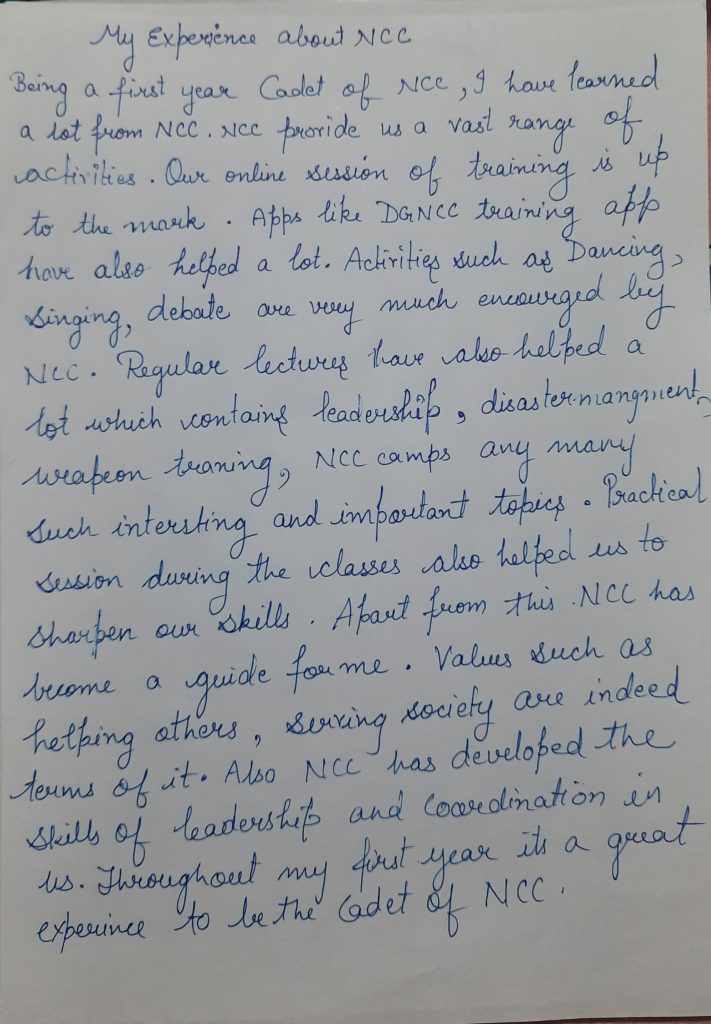 My Experience about NCC
Being a first year Cadet of NCC, I have learned
a lot from NCC. NCC provide us a vast range of
activities. Our online session of training is up
to the mark. Apps like DGNCC training app
have also helped a lot. Activities such as Dancing,
singing, debate are very much encourged by
NCC. Regular lectures have also helped a
lot which contains leadership, disaster mangment,
weapeon traning, NCC camps any many
such intersting and important topics. Practical
session during the classes also helped us to
sharpen our skills. Apart from this NCC has
become a guide for me. Values such as
helping others, serving society are indeed
terms of it. Also NCC has developed the
skills of leadership and Coordination in
us. Throughout my first year its a great
experince to be the Cadet of NCC.